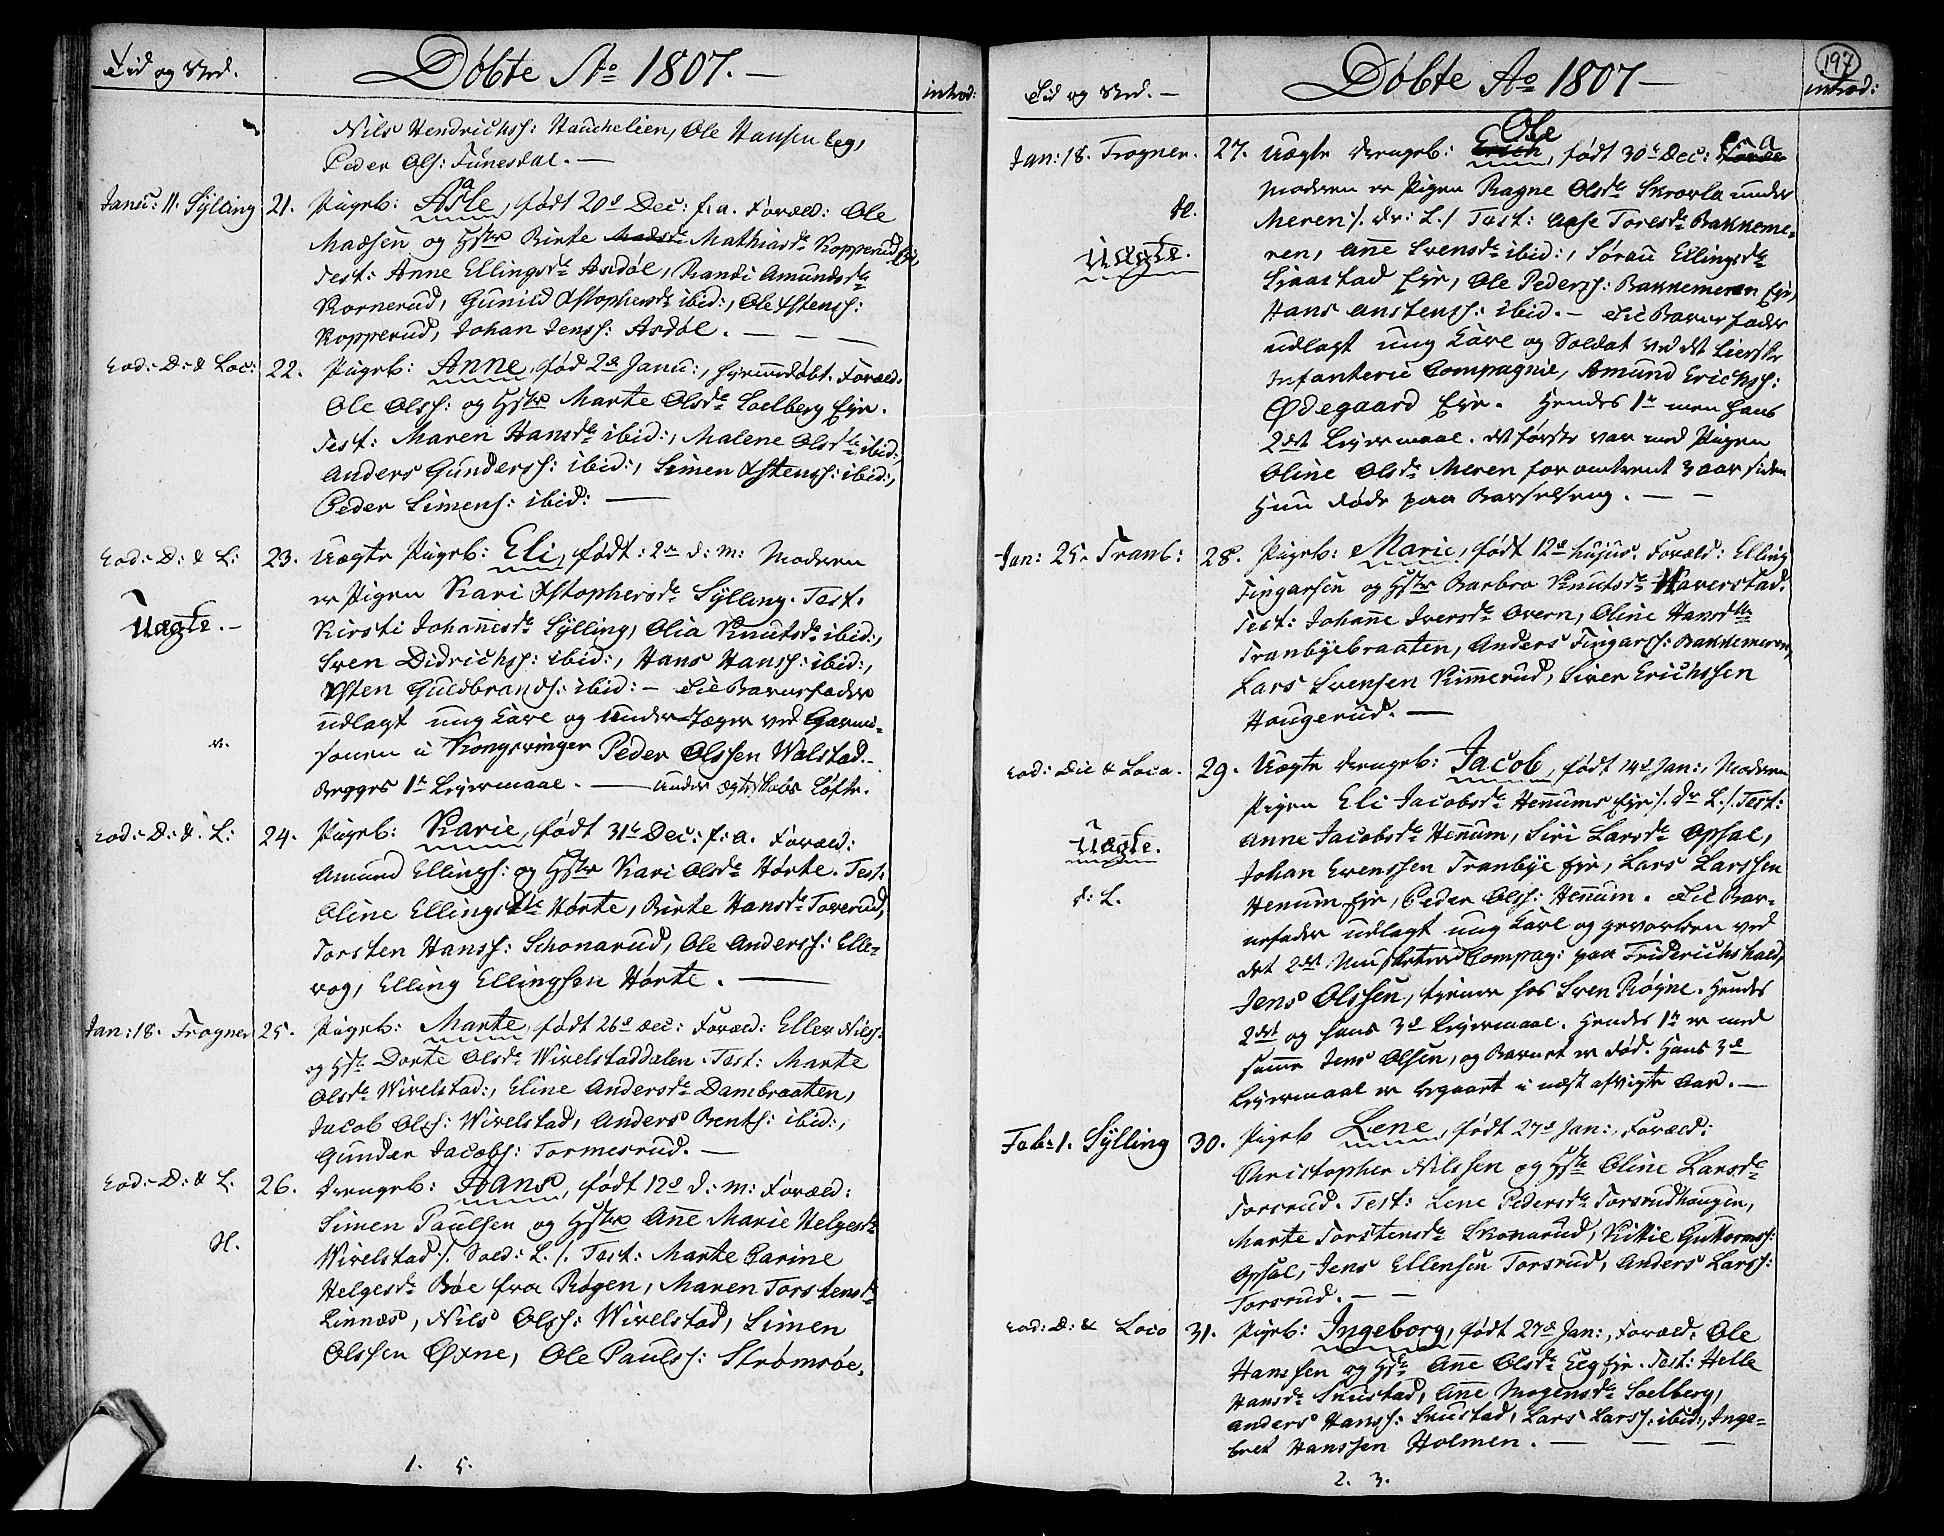 Tid og Sted.
Døbte Ao 1807. —
introd:
Nils Hendrichss: Hauchelien, Ole Hansen Eeg,
Peder Ols: Funesdal. —
Janu: 11. Sylling 21. Pigeb: Asle, født 20de Dec: f. a. Foræld: Ole
Madsen og Hstr Birte Madsdr Mathiasdr Kopperud Eje,
Test: Anne Ellingsdr Asdøl, Randi Amundsdr
Kornerud, Gunild Xstophersdr ibid:, Ole Xstens:
Kopperud, Johan Jenss: Asdøl. — — —
eod: D: & Loc: 22. Pigeb: Anne, fød 2de Janu:, hjemmedøbt. Foræld:
Ole Olss: og Hstr Marte Olsdr Solberg Eje.
Test: Maren Hansdr ibid:, Malene Olsdr ibid:,
Anders Gunderss: ibid:, Simen Xstenss: ibid:,
Peder Simens: ibid: —
eod: D: & L: 23. Uægte Pigeb: Eli, født: 2den d: m: Moderen
er Pigen Kari Xstophersdr Sylling. Test.
Uægte. — Kirsti Johannesdr Sylling, Olia Knutsdr ibid:,
Sven Didrichss: ibid:, Hans Hanss: ibid:,
Xsten Guldbrands: ibid: — Til Barnefader
udlagt ung Karl og Under-Jæger ved Garni-
sonen i Kongsvinger Peder Olssen Walstad. —
Begges 1te Leiermaal. — under Ægteskabs Løfte.
eod: D: & L: 24. Pigeb: Karie, født 31te Dec: f: a. Foræld:
Amund Ellings: og Hstr Kari Olsdr Hørte. Test.
Oline Ellingsdr Hørte, Birte Hansdr Toverud,
Torsten Hanss: Schonarud, Ole Anderss: Elle-
vog, Elling Ellingsen Hørte. —
Jan: 18. Frogner 25. Pigeb: Marte, født 26de Dec: Foræld: Ellev Nils:
og Hstr Dorte Olsdr Wivelstaddalen. Test: Marte
Olsdr Wivelstad:, Eline Andersdr Dambraaten,
Jacob Ols: Wivelstad, Anders Bents: ibid:,
Gunder Jacobs: Tormesrud. —
eod: D: & L. 26. Drengeb: Hans, født 12de d: m: Foræld:
Simen Paulsen og Hstr Ane Marie Helgesdr
H. Wivelstad /: Sold: L. /. Test: Marte Carine
Helgesdr Bøe fra Røgen, Maren Torstensdr
Linnæs, Nils Olss: Wivelstad, Simen
Olssen Øxne, Ole Paulss: Strømsøe.
1. 5.
197
Tid og Sted. —
Døbte Ao 1807 —
introd:
Jan: 18. Frogner. 27. Uægte Drengeb: Erich Ole, født 30te Dec: f. a
Moderen er Pigen Ragne Olsdr Skrovla under
H. Meren /. dr: L. / Test: Aase Toresdr Bakkeme-
Uægte. ren, Ane Svensdr ibid:, Sørau Ellingsdr
Sjaastad Eje, Ole Pederss: Bakkemeren Eje,
Hans Anstenss: ibid. — Til Barnefader
udlagt ung Karl og Soldat ved det Lierske
Infanterie Compagnie, Amund Erichss:
Ødegaard Eje. Hendes 1te men hans
2det Leiermaal. det første var med Pigen
Oline Olsdr Meren for omtrent 3 aar siden
Hun døde paa Barselseng. — —
Jan: 25. Tranb: 28. Pigeb: Marie, født 12te hujus. Foræld: Elling
Fingarsen og Hstr Barbro Knutsdr Haverstad.
Test: Johane Iversdr Overn, Oline Hansdr
Tranbyebraaten, Anders Fingarss: Bakkemeren,
Lars Svensen Kimerud, Siver Erichssen
Hougerud. —
eod: Die & Loco. 29. Uægte Drengeb: Jacob, født 14de Jan:, Moderen
Pigen Eli Jacobsdr Henums Eje /. dr L. /. Test:
Uægte. Anne Jacobsdr Henum, Siri Larsdr Opsal,
Johan Evenssen Tranbye Eje, Lars Larssen
d: L. Henum Eje, Peder Olss: Henum. Til Bar-
nefader udlagt ung Karl og gevorben ved
det 2det Musketeer Compag: paa Friderichshald,
Jens Olssen, tjener hos Sven Røgne. Hendes
2det og hans 3de Leiermaal. Hendes 1te er med
samme Jens Olsen, og Barnet er død. Hans 3de
Leiermaal er begaaet i næst afvigte Aar. —
Feb: 1. Sylling 30. Pigeb Lene, født 27de Jan:, Foræld:
Christopher Nilssen og Hstr Oline Larsdr
Torsrud. Test: Lene Pedersdr Torsrudhougen,
Marte Torstensdr Skonarud, Kittil Guttorms:
Opsal, Jens Ellensen Torsrud, Anders Larss:
Torsrud. — —
eod: D: & Loco 31. Pigeb: Ingeborg, født 27de Jan:, Foræld: Ole
Hanssen og Hstr Ane Olsdr Eeg Eje. Test: Helle
Hansdr Snustad, Ane Mogensdr Solberg,
Anders Hanss: Snustad, Lars Larss: ibid:, Inge-
bret Hanssen Holmen. — — —
2. 3.